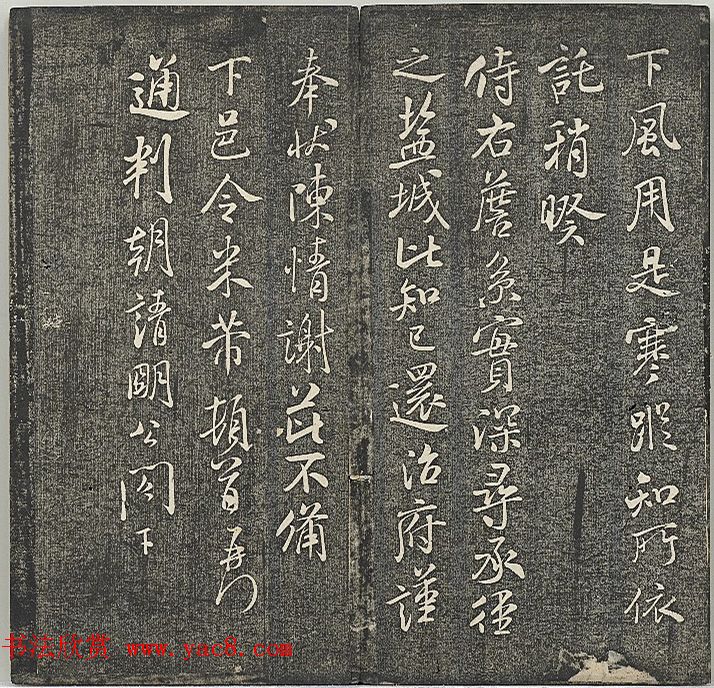 下風用是寒蹤知所依
託稍暌
侍右詹系實深尋承徑
之盐城比知已還治府謹
奉狀陳情謝茲不備
下邑令米芾頓首再
通判朝請明公閤下
书法欣赏 www.yac8.com